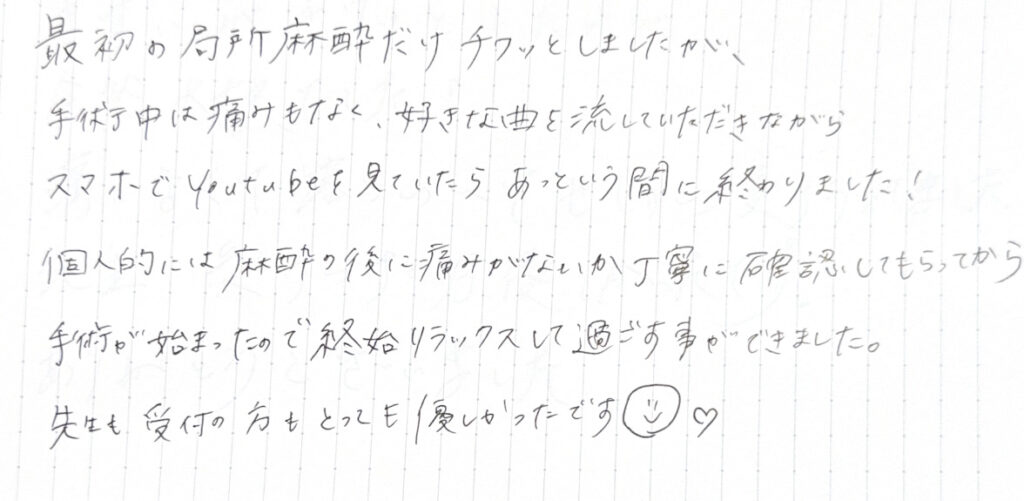 最初の局所麻酔だけチクッとしましたが、
手術中は痛みもなく、好きな曲を流していただきながら
スマホでYoutubeを見ていたらあっという間に終わりました!
個人的には麻酔の後に痛みがないか丁寧に確認してもらってから
手術が始まったので終始リラックスして過ごす事ができました。
先生も受付の方もとっても優しかったです☺♡